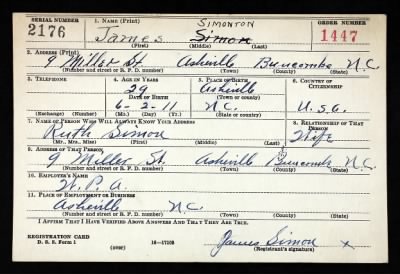 SERIAL NUMBER 1. NAME (Print) ORDER NUMBER
SIMONTON
2176 James Simon 1447
(First) (Middle) (Last)
2. ADDRESS (Print)
9 Miller St. Asheville Buncombe N.C.
(Number and street or R. F. D. number) (Town) (County) (State)
3. TELEPHONE 4. AGE IN YEARS 5. PLACE OF BIRTH 6. COUNTRY OF CITIZENSHIP
29 Asheville
DATE OF BIRTH (Town or county)
6-2-11 N.C. U.S.A.
(Exchange) (Number) (Mo.) (Day) (Yr.) (State or country)
7. NAME OF PERSON WHO WILL ALWAYS KNOW YOUR ADDRESS 8. RELATIONSHIP OF THAT PERSON
Ruth Simon Wife
(Mr., Mrs., Miss) (First) (Middle) (Last)
9. ADDRESS OF THAT PERSON
9 Miller St. Asheville Buncombe N.C.
(Number and street or R. F. D. number) (Town) (County) (State)
10. EMPLOYER'S NAME
W.P.A.
11. PLACE OF EMPLOYMENT OR BUSINESS
Asheville N.C.
(Number and street or R. F. D. number) (Town) (County) (State)
I AFFIRM THAT I HAVE VERIFIED ABOVE ANSWERS AND THAT THEY ARE TRUE.
REGISTRATION CARD James Simon x
D. S. S. Form 1 (over) 16-17105 (Registrant's signature)